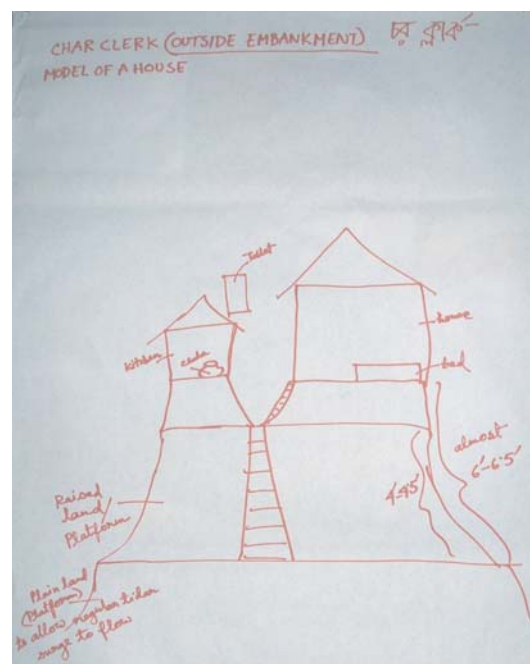 CHAR CLERK (OUTSIDE EMBANKMENT) চর ক্লার্ক
MODEL OF A HOUSE
Toilet
house
kitchen
chula
bed
almost
6'-6.5'
4'-4.5'
Raised
land
Platform
Plain land
(Platform)
to allow regular tidar
surge to flow